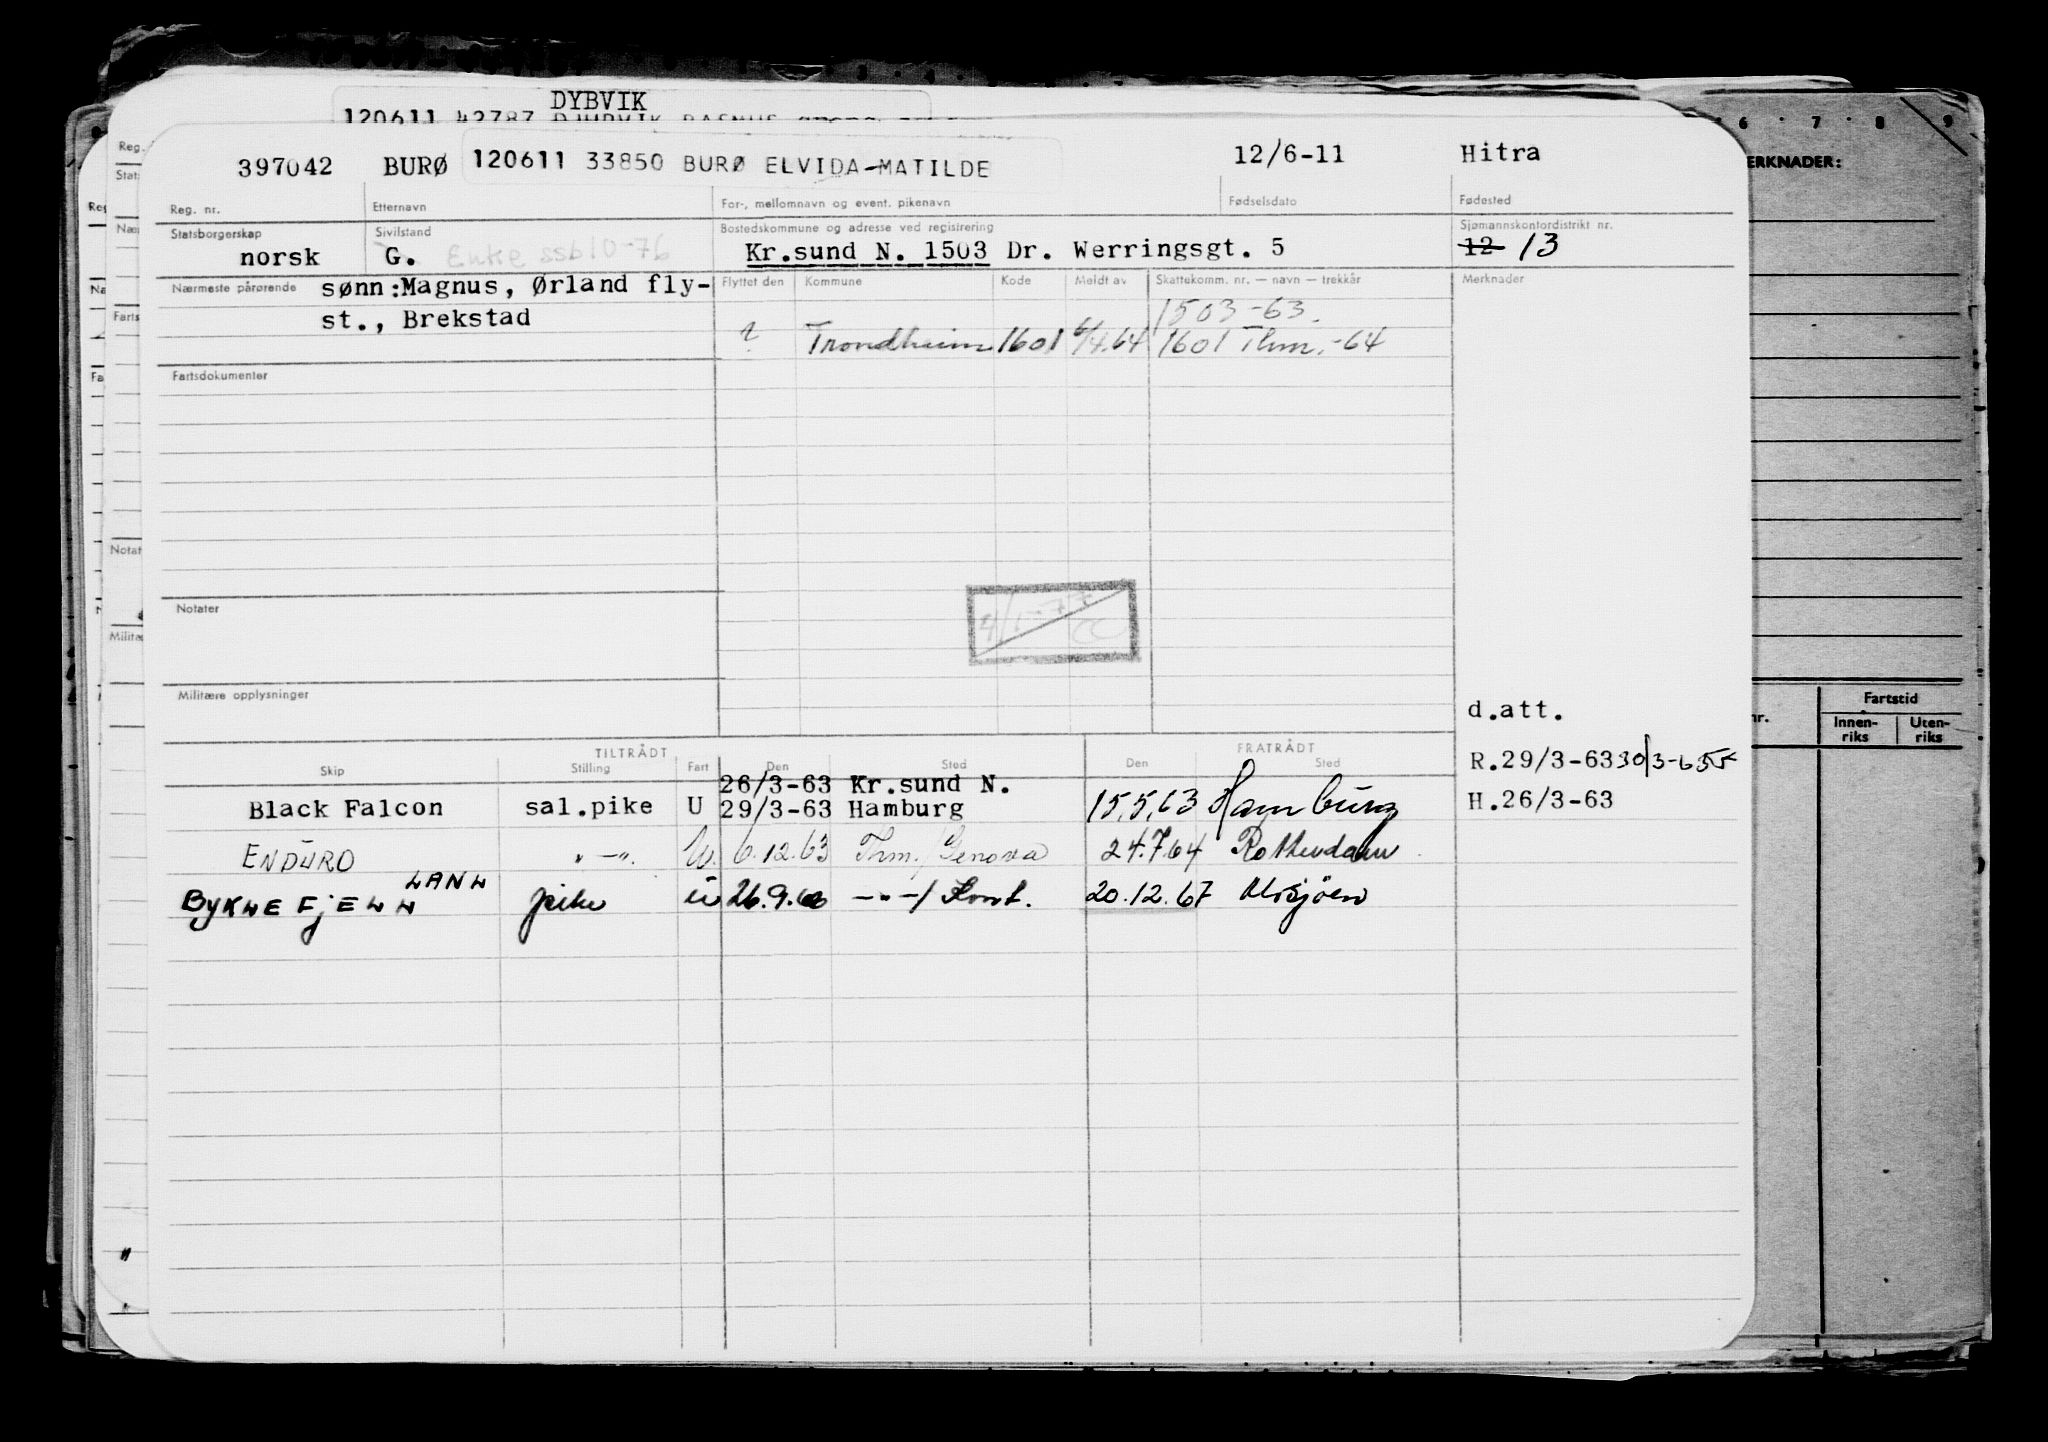 DYBVIK
120611 42787
397042 BURØ 120611 33850 BURØ ELVIDA-MATILDE 12/6-11 Hitra
Reg. nr. Etternavn For-, mellomnavn og event. pikenavn Fødselsdato Fødested
Statsborgerskap Sivilstand Bostedskommune og adresse ved registrering Sjømannskontordistrikt nr.
norsk G. Enke ssb10-76 Kr.sund N. 1503 Dr. Werringsgt. 5 12 13
Nærmeste pårørende sønn:Magnus, Ørland fly- Flyttet den Kommune Kode Meldt av Skattekomm. nr. — navn — trekkår Merknader
st., Brekstad 1503-63.
? Trondheim 1601 6/4.64 1601 Thm.-64
Fartsdokumenter
Notater
4/1-77
Militære opplysninger
d.att.
TILTRÅDT FRATRÅDT
Skip Stilling Fart Den Sted Den Sted
R.29/3-63 30/3-65
26/3-63 Kr.sund N.
Black Falcon sal.pike U 29/3-63 Hamburg 15.5.63 Hamburg H.26/3-63
ENDURO " — " U. 6.12.63 Thm./Genova 24.7.64 Rotterdam
BYKLEFJELL pike U 26.9. 20.12.67 Mosjöen
ERKNADER:
6 7 8 9
Fartstid
nr. Innen-riks Uten-riks
Reg.
Notat
Militæ